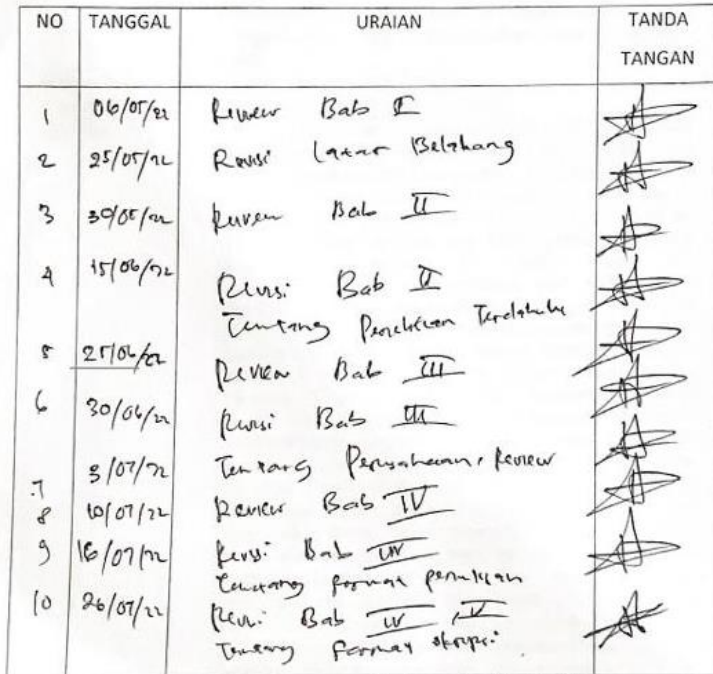 NO TANGGAL URAIAN TANDA
TANGAN
1 06/05/22 Review Bab I
2 25/05/22 Revisi Latar Belakang
3 30/05/22 Review Bab II
4 15/06/22 Revisi Bab II
Tentang Penelitian Terdahulu
5 25/06/22 Review Bab III
6 30/06/22 Revisi Bab III
7 3/07/22 Tentang Perusahaan, Review
8 10/07/22 Review Bab IV
9 16/07/22 Revisi Bab IV
Tentang format penulisan
10 26/07/22 Revisi Bab IV, V
Tentang format skripsi